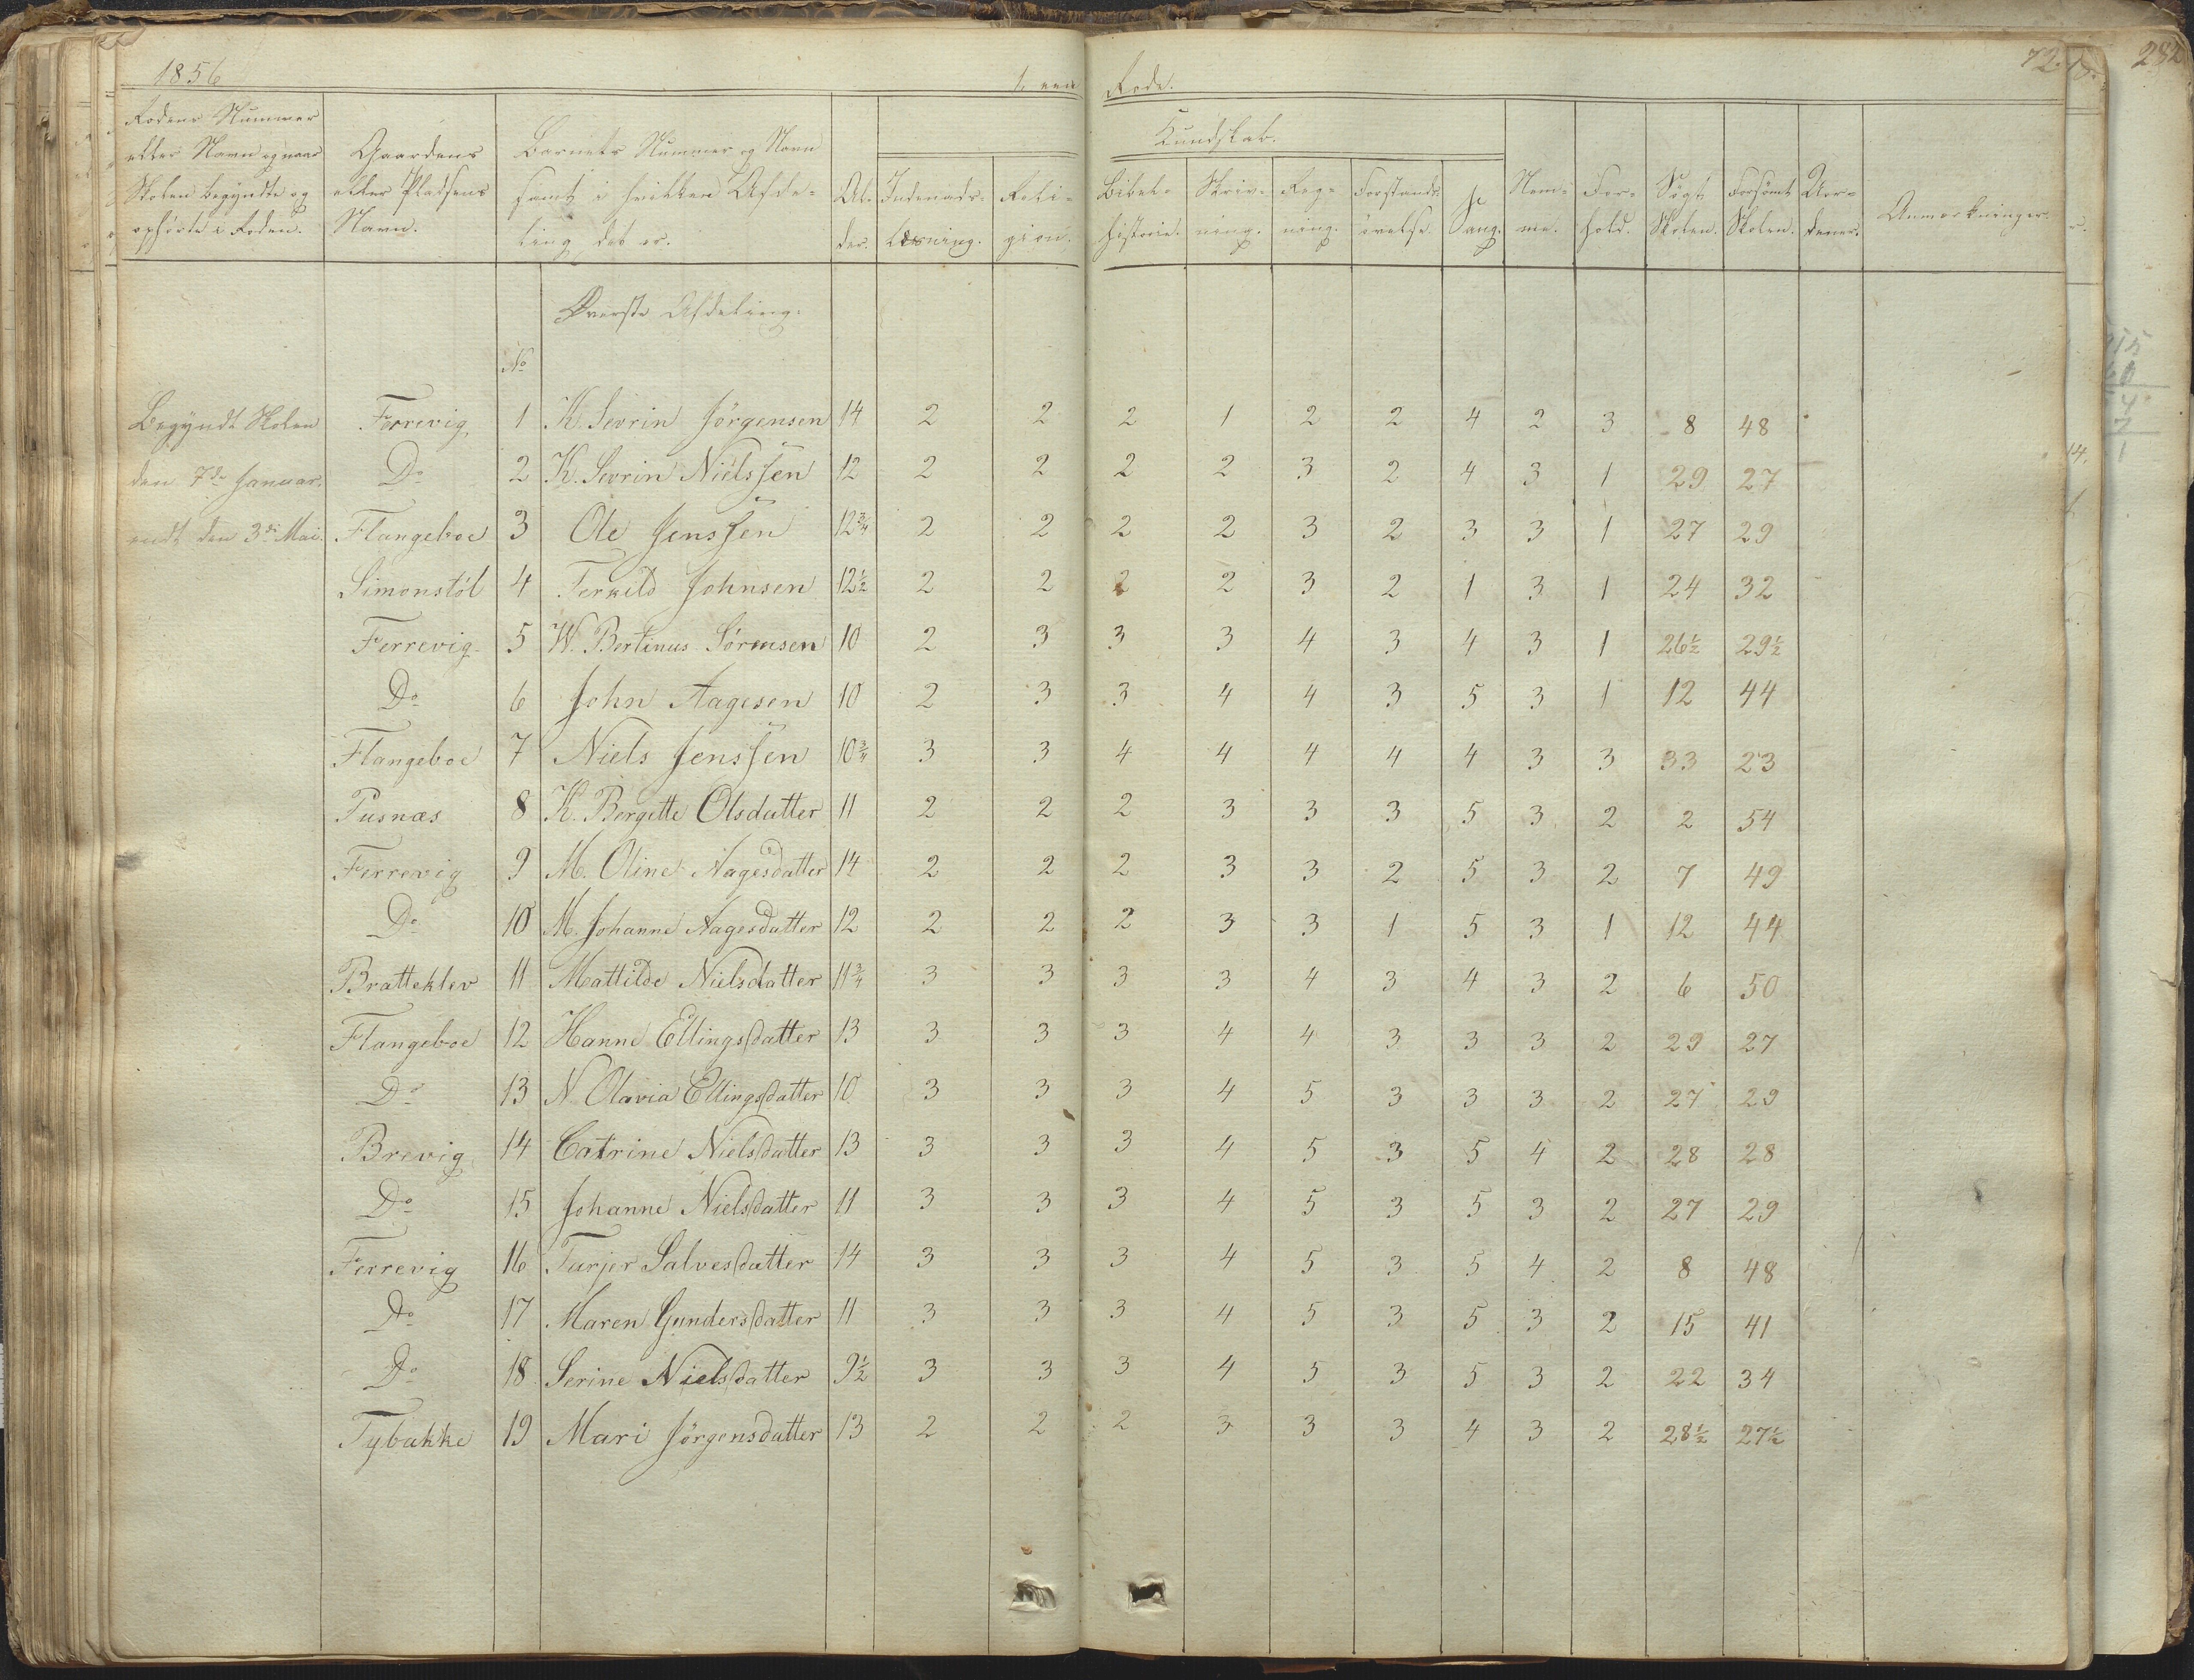 1856 1, een Rode. 72.
282
Rodens Nummer eller Navn og naar Skolen begyndte og ophørte i Roden.
Gaardens eller Pladsens Navn.
Barnets Nummer og Navn samt i hvilken Afdeling det er.
Alder.
Kundskab.
Indenadslæsning.
Religion.
Bibelhistorie.
Skrivning.
Regning.
Forstandsövelse.
Sang.
Nemme.
Forhold.
Sögt Skolen.
Forsömt Skolen.
Uordener.
Anmærkninger.
Øverste Afdeling.
No
Begyndt Skolen Ferrevig 1 K. Sevrin Jörgensen 14 2 2 2 1 2 2 4 2 3 8 48
den 7de Januar. Do 2 K. Sevrin Nielssen 12 2 2 2 2 3 2 4 3 1 29 27
endt den 3di Mai. Flangeboe 3 Ole Jenssen 12¾ 2 2 2 2 3 2 3 3 1 27 29
Simonstöl 4 Terkild Johnsen 12½ 2 2 2 2 3 2 1 3 1 24 32
Ferrevig 5 W. Bertinus Sörensen 10 2 3 3 3 4 3 4 3 1 26½ 29½
Do 6 John Aagesen 10 2 3 3 4 4 3 5 3 1 12 44
Flangeboe 7 Niels Jenssen 10¾ 3 3 4 4 4 4 4 3 3 33 23
Pusnæs 8 K. Bergitte Olsdatter 11 2 2 2 3 3 3 5 3 2 2 54
Ferrevig 9 M. Oline Aagesdatter 14 2 2 2 3 3 2 5 3 2 7 49
Do 10 M. Johanne Aagesdatter 12 2 2 2 3 3 1 5 3 1 12 44
Bratteklev 11 Mattilde Nielsdatter 11¾ 3 3 3 3 4 3 4 3 2 6 50
Flangeboe 12 Hanne Ellingsdatter 13 3 3 3 4 4 3 3 3 2 29 27
Do 13 N. Olavia Ellingsdatter 10 3 3 3 4 5 3 3 3 2 27 29
Brevig 14 Catrine Nielsdatter 13 3 3 3 4 5 3 5 4 2 28 28
Do 15 Johanne Nielsdatter 11 3 3 3 4 5 3 5 3 2 27 29
Ferrevig 16 Tarjer Salvesdatter 14 3 3 3 4 5 3 5 4 2 8 48
Do 17 Maren Gundersdatter 11 3 3 3 4 5 3 5 3 2 15 41
Do 18 Serine Nielsdatter 9½ 3 3 3 4 5 3 5 3 2 22 34
Tybakke 19 Mari Jörgensdatter 13 2 2 2 3 3 3 4 3 2 28½ 27½